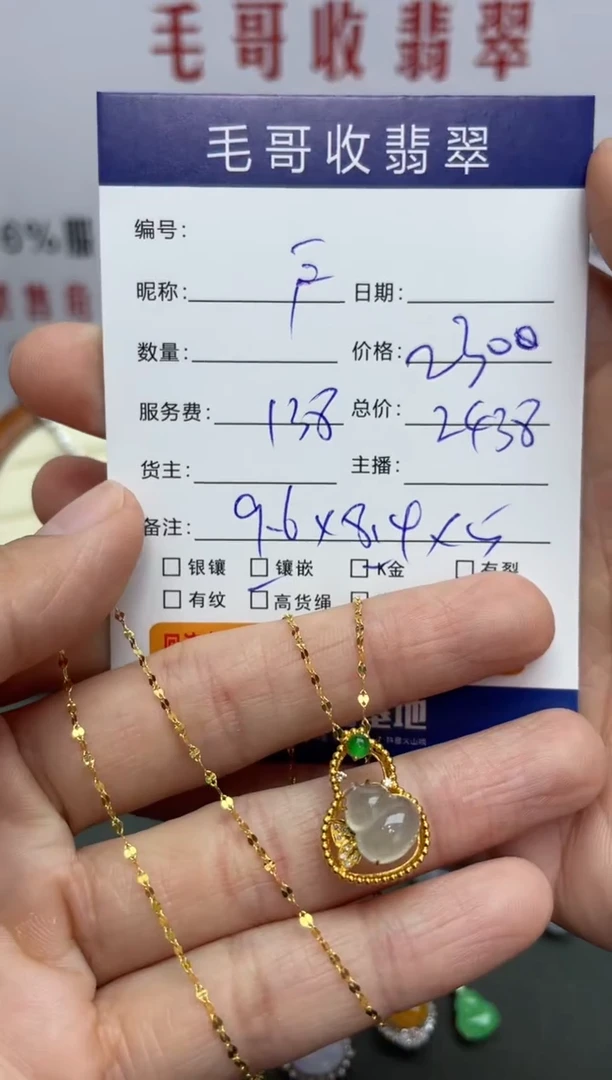 毛哥收翡翠
6%服
毛哥收翡翠
编号:
昵称: 日期:
数量: 价格: 2300
服务费: 138 总价: 2438
货主: 主播:
备注: 9.6×8.4×5
银镶 镶嵌 K金 有裂
有纹 高货绳
基地